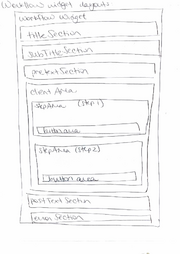 Workflow widget layouts
workflow widget
title Section
subTitle Section
pretext Section
client Area
stepArea (step 1)
button area
stepArea (step 2)
button area
post Text Section
error Section